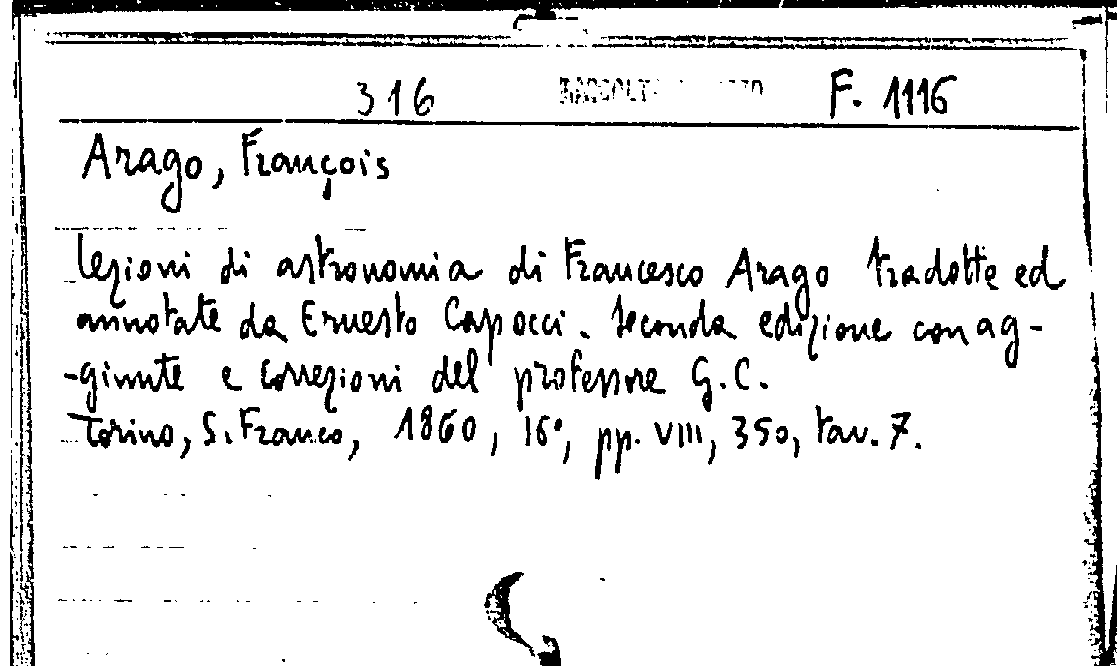 316 F. 1116
Arago, François
Lezioni di astronomia di Francesco Arago tradotte ed
annotate da Ernesto Capocci. Seconda edizione con ag-
-giunte e correzioni del professore G.C.
Torino, S. Franco, 1860, 16°, pp. VIII, 350, tav. 7.